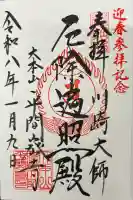 迎春參拝記念
奉拝 川崎大師
厄除遍照殿
大本山平間寺
令和八年一月九日